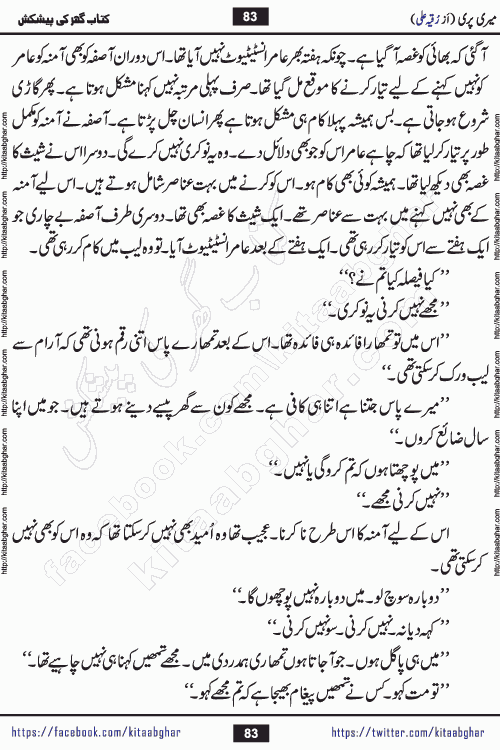 میری پری (اَز رُقیہ علی)
83
کتاب گھر کی پیشکش
آ گئی کہ بھائی کو غصہ آ گیا ہے۔ چونکہ ہفتہ بھر عامر انسٹیٹیوٹ نہیں آیا تھا۔ اس دوران آصفہ کو بھی آمنہ کو عامر
کو نہیں کہنے کے لیے تیار کرنے کا موقع مل گیا تھا۔ صرف پہلی مرتبہ نہیں کہنا مشکل ہوتا ہے۔ پھر گاڑی
شروع ہو جاتی ہے۔ بس ہمیشہ پہلا کام ہی مشکل ہوتا ہے پھر انسان چل پڑتا ہے۔ آصفہ نے آمنہ کو مکمل
طور پر تیار کر لیا تھا کہ چاہے عامر اس کو جو بھی دلائل دے۔ وہ یہ نوکری نہیں کرے گی۔ دوسرا اس نے شیث کا
غصہ بھی دیکھ لیا تھا۔ ہمیشہ کوئی بھی کام ہو۔ اس کو کرنے میں بہت سے عناصر شامل ہوتے ہیں۔ اس لیے آمنہ
کے بھی نہیں کہنے میں بہت سے عناصر تھے۔ ایک شیث کا غصہ بھی تھا۔ دوسری طرف آصفہ بے چاری جو
ایک ہفتے سے اس کو تیار کر رہی تھی۔ ایک ہفتے کے بعد عامر انسٹیٹیوٹ آیا۔ تو وہ لیب میں کام کر رہی تھی۔
’’کیا فیصلہ کیا تم نے؟‘‘
’’مجھے نہیں کرنی یہ نوکری۔‘‘
’’اس میں تو تمھارا فائدہ ہی فائدہ تھا۔ اس کے بعد تمھارے پاس اتنی رقم ہونی تھی کہ آرام سے
لیب ورک کر سکتی تھی۔‘‘
’’میرے پاس جتنا ہے اتنا ہی کافی ہے۔ مجھے کون سے گھر پیسے دینے ہوتے ہیں۔ جو میں اپنا
سال ضائع کروں۔‘‘
’’میں پوچھتا ہوں کہ تم کرو گی یا نہیں۔‘‘
’’نہیں کرنی مجھے۔‘‘
اس کے لیے آمنہ کا اس طرح نا کرنا۔ عجیب تھا وہ اُمید بھی نہیں کر سکتا تھا کہ وہ اس کو بھی نہیں
کر سکتی تھی۔
’’دوبارہ سوچ لو۔ میں دوبارہ نہیں پوچھوں گا۔‘‘
’’کہہ دیا نہ۔ نہیں کرنی۔ سو نہیں کرنی۔‘‘
’’میں ہی پاگل ہوں۔ جو آ جاتا ہوں تمھاری ہمدردی میں۔ مجھے تمھیں کہنا ہی نہیں چاہیے تھا۔‘‘
’’تو مت کہو۔ کس نے تمھیں پیغام بھیجا ہے کہ تم مجھے کہو۔‘‘
http://kitaabghar.com http://kitaabghar.com http://kitaabghar.com http://kitaabghar.com http://kitaabghar.com http://kitaabghar.com
http://kitaabghar.com http://kitaabghar.com http://kitaabghar.com http://kitaabghar.com http://kitaabghar.com http://kitaabghar.com
کتاب گھر کی پیشکش
kitaabghar.com
facebook.com/kitaabghar
https://facebook.com/kitaabghar
83
https://twitter.com/kitaabghar